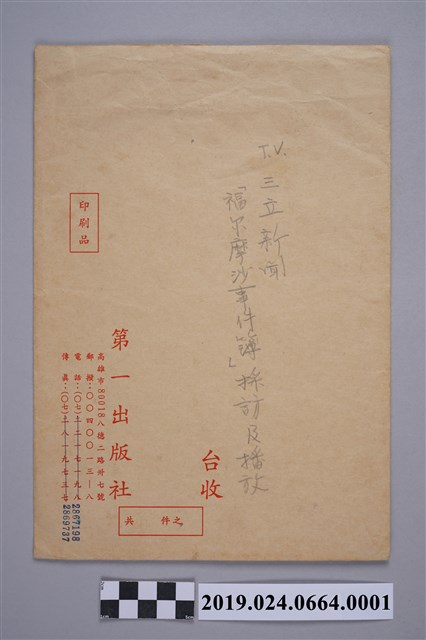 T.V. 三立新聞
「福尔摩沙事件簿」採訪及播放
台收
印刷品
第一出版社
高雄市80018八德二路卅七號
郵撥：〇〇四〇〇一三—八
電話：(〇七)二一七一九八
2867198
傳真：(〇七)二八一九七三七
2869737
共　件之
2019.024.0664.0001